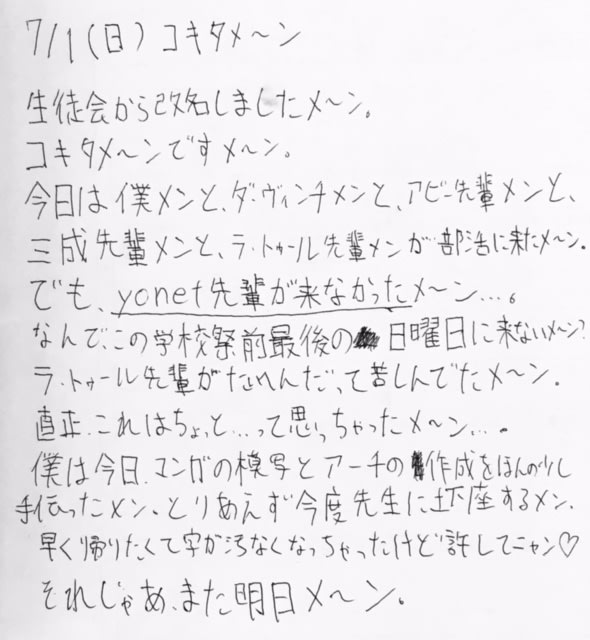 7/1(日) コキタメ〜ン
生徒会から改名しましたメ〜ン。
コキタメ〜ンですメ〜ン。
今日は僕メンと、ダ・ヴィンチメンと、アビー先輩メンと、
三成先輩メンと、ラ・トゥール先輩メンが部活に来たメ〜ン。
でも、yonet先輩が来なかったメ〜ン…。
なんで、この学校祭前最後の日曜日に来ないメ〜ン?
ラ・トゥール先輩がたいへんだって苦しんでたメ〜ン。
直正、これはちょっと…って思っちゃったメ〜ン…。
僕は今日、マンガの模写とアーチの作成をほんの少し
手伝ったメン、とりあえず今度先生に土下座するメン、
早く帰りたくて字が汚なくなっちゃったけど許してニャン♡
それじゃあ、また明日メ〜ン。